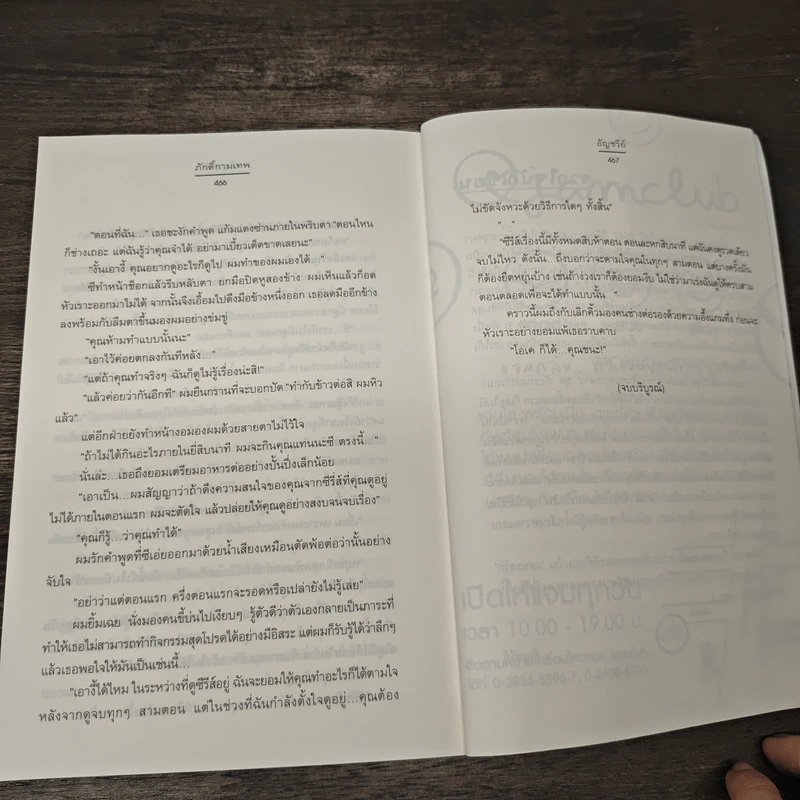 ภักดิ์กามเทพ
466
"ตอนที่ฉัน..." เธอชะงักคำพูด แก้มแดงซ่านภายในพริบตา "ตอนไหน
ก็ช่างเถอะ แต่ฉันรู้ว่าคุณจำได้ อย่ามาเบี้ยวเด็ดขาดเลยนะ"
"งั้นเอางี้ คุณอยากดูอะไรก็ดูไป ผมทำของผมเองได้..."
ซีทำหน้าช็อกแล้วรีบหลับตา ยกมือปิดหูสองข้าง ผมเห็นแล้วก็อด
หัวเราะออกมาไม่ได้ จากนั้นจึงเอื้อมไปดึงมือข้างหนึ่งออก เธอลดมืออีกข้าง
ลงพร้อมกับลืมตาขึ้นมองผมอย่างข่มขู่
"คุณห้ามทำแบบนั้นนะ"
"เอาไว้ค่อยตกลงกันทีหลัง..."
"แต่ถ้าคุณทำจริงๆ ฉันก็ดูไม่รู้เรื่องน่ะสิ!"
"แล้วค่อยว่ากันอีกที" ผมยืนกรานที่จะบอกปัด "ทำกับข้าวต่อสิ ผมหิว
แล้ว"
แต่อีกฝ่ายยังทำหน้างอมองผมด้วยสายตาไม่ไว้ใจ
"ถ้าไม่ได้กินอะไรภายในยี่สิบนาที ผมจะกินคุณแทนนะซี ตรงนี้..."
นั่นล่ะ...เธอถึงยอมเตรียมอาหารต่ออย่างปั้นปึ่งเล็กน้อย
"เอาเป็น...ผมสัญญาว่าถ้าดึงความสนใจของคุณจากซีรี่ส์ที่คุณดูอยู่
ไม่ได้ภายในตอนแรก ผมจะตัดใจ แล้วปล่อยให้คุณดูอย่างสงบจนจบเรื่อง"
"คุณก็รู้...ว่าคุณทำได้"
ผมรักคำพูดที่ซีเอ่ยออกมาด้วยน้ำเสียงเหมือนตัดพ้อต่อว่านั้นอย่าง
จับใจ
"อย่าว่าแต่ตอนแรก ครึ่งตอนแรกจะรอดหรือเปล่ายังไม่รู้เลย"
ผมยิ้มเฉย นั่งมองคนขี้บ่นไปเงียบๆ รู้ตัวดีว่าตัวเองกลายเป็นภาระที่
ทำให้เธอไม่สามารถทำกิจกรรมสุดโปรดได้อย่างมีอิสระ แต่ผมก็รับรู้ได้ว่าลึกๆ
แล้วเธอพอใจให้มันเป็นเช่นนี้...
"เอางี้ได้ไหม ในระหว่างที่ดูซีรี่ส์อยู่ ฉันจะยอมให้คุณทำอะไรก็ได้ตามใจ
หลังจากดูจบทุกๆ สามตอน แต่ในช่วงที่ฉันกำลังตั้งใจดูอยู่...คุณต้อง
อัญชรีย์
467
ไม่ขัดจังหวะด้วยวิธีการใดๆ ทั้งสิ้น"
"..."
"ซีรี่ส์เรื่องนี้มีทั้งหมดสิบห้าตอน ตอนละหกสิบนาที แต่ฉันคงดูรวดเดียว
จบไม่ไหว ดังนั้น...ถึงบอกว่าจะตามใจคุณในทุกๆ สามตอน แต่บางครั้งมัน
ก็ต้องยืดหยุ่นบ้าง เช่นถ้าง่วงเราก็ต้องยอมงีบ ไม่ใช่ว่ามาเร่งฉันดูให้ครบสาม
ตอนตลอดเพื่อจะได้ทำแบบนั้น..."
คราวนี้ผมถึงกับเลิกคิ้วมองคนช่างต่อรองด้วยความอึ้งแกมทึ่ง ก่อนจะ
หัวเราะอย่างยอมแพ้เธอราบคาบ
"โอเค ก็ได้...คุณชนะ!"
(จบบริบูรณ์)